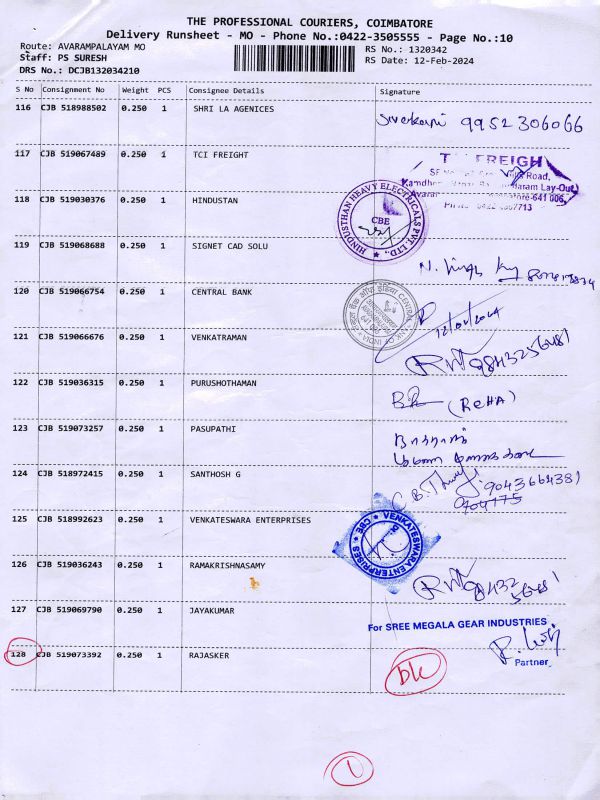 THE PROFESSIONAL COURIERS, COIMBATORE
Delivery Runsheet - MO - Phone No.:0422-3505555 - Page No.:10
Route: AVARAMPALAYAM MO
RS No.: 1320342
Staff: PS SURESH
RS Date: 12-Feb-2024
DRS No.: DCJB132034210
S No Consignment No Weight PCS Consignee Details Signature
116 CJB 518988502 0.250 1 SHRI LA AGENICES
9952306066
117 CJB 519067489 0.250 1 TCI FREIGHT
FREIGH
Road,
Lay-Out
641 006
118 CJB 519030376 0.250 1 HINDUSTAN
HINDUSTHAN HEAVY ELECTRICALS PVT. LTD.,
CBE
119 CJB 519068688 0.250 1 SIGNET CAD SOLU
120 CJB 519066754 0.250 1 CENTRAL BANK
12/02/2024
121 CJB 519066676 0.250 1 VENKATRAMAN
9843256481
122 CJB 519036315 0.250 1 PURUSHOTHAMAN
(ReHA)
123 CJB 519073257 0.250 1 PASUPATHI
124 CJB 518972415 0.250 1 SANTHOSH G
9043664381
125 CJB 518992623 0.250 1 VENKATESWARA ENTERPRISES
VENKATESWARA ENTERPRISES
CBE
126 CJB 519036243 0.250 1 RAMAKRISHNASAMY
98432
56481
127 CJB 519069790 0.250 1 JAYAKUMAR
For SREE MEGALA GEAR INDUSTRIES
Partner
128 CJB 519073392 0.250 1 RAJASKER
DK
1